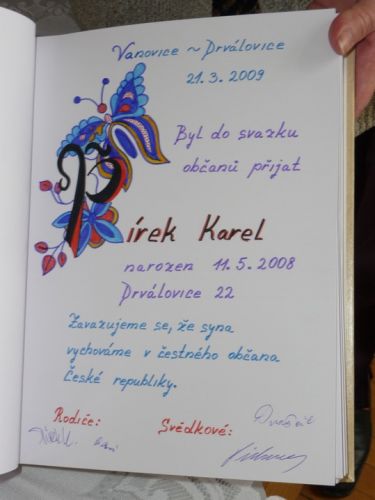 Vanovice ~ Drválovice
21.3.2009
Byl do svazku
občanů přijat
Pírek Karel
narozen 11.5.2008
Drválovice 22
Zavazujeme se, že syna
vychováme v čestného občana
České republiky.
Rodiče: Svědkové: